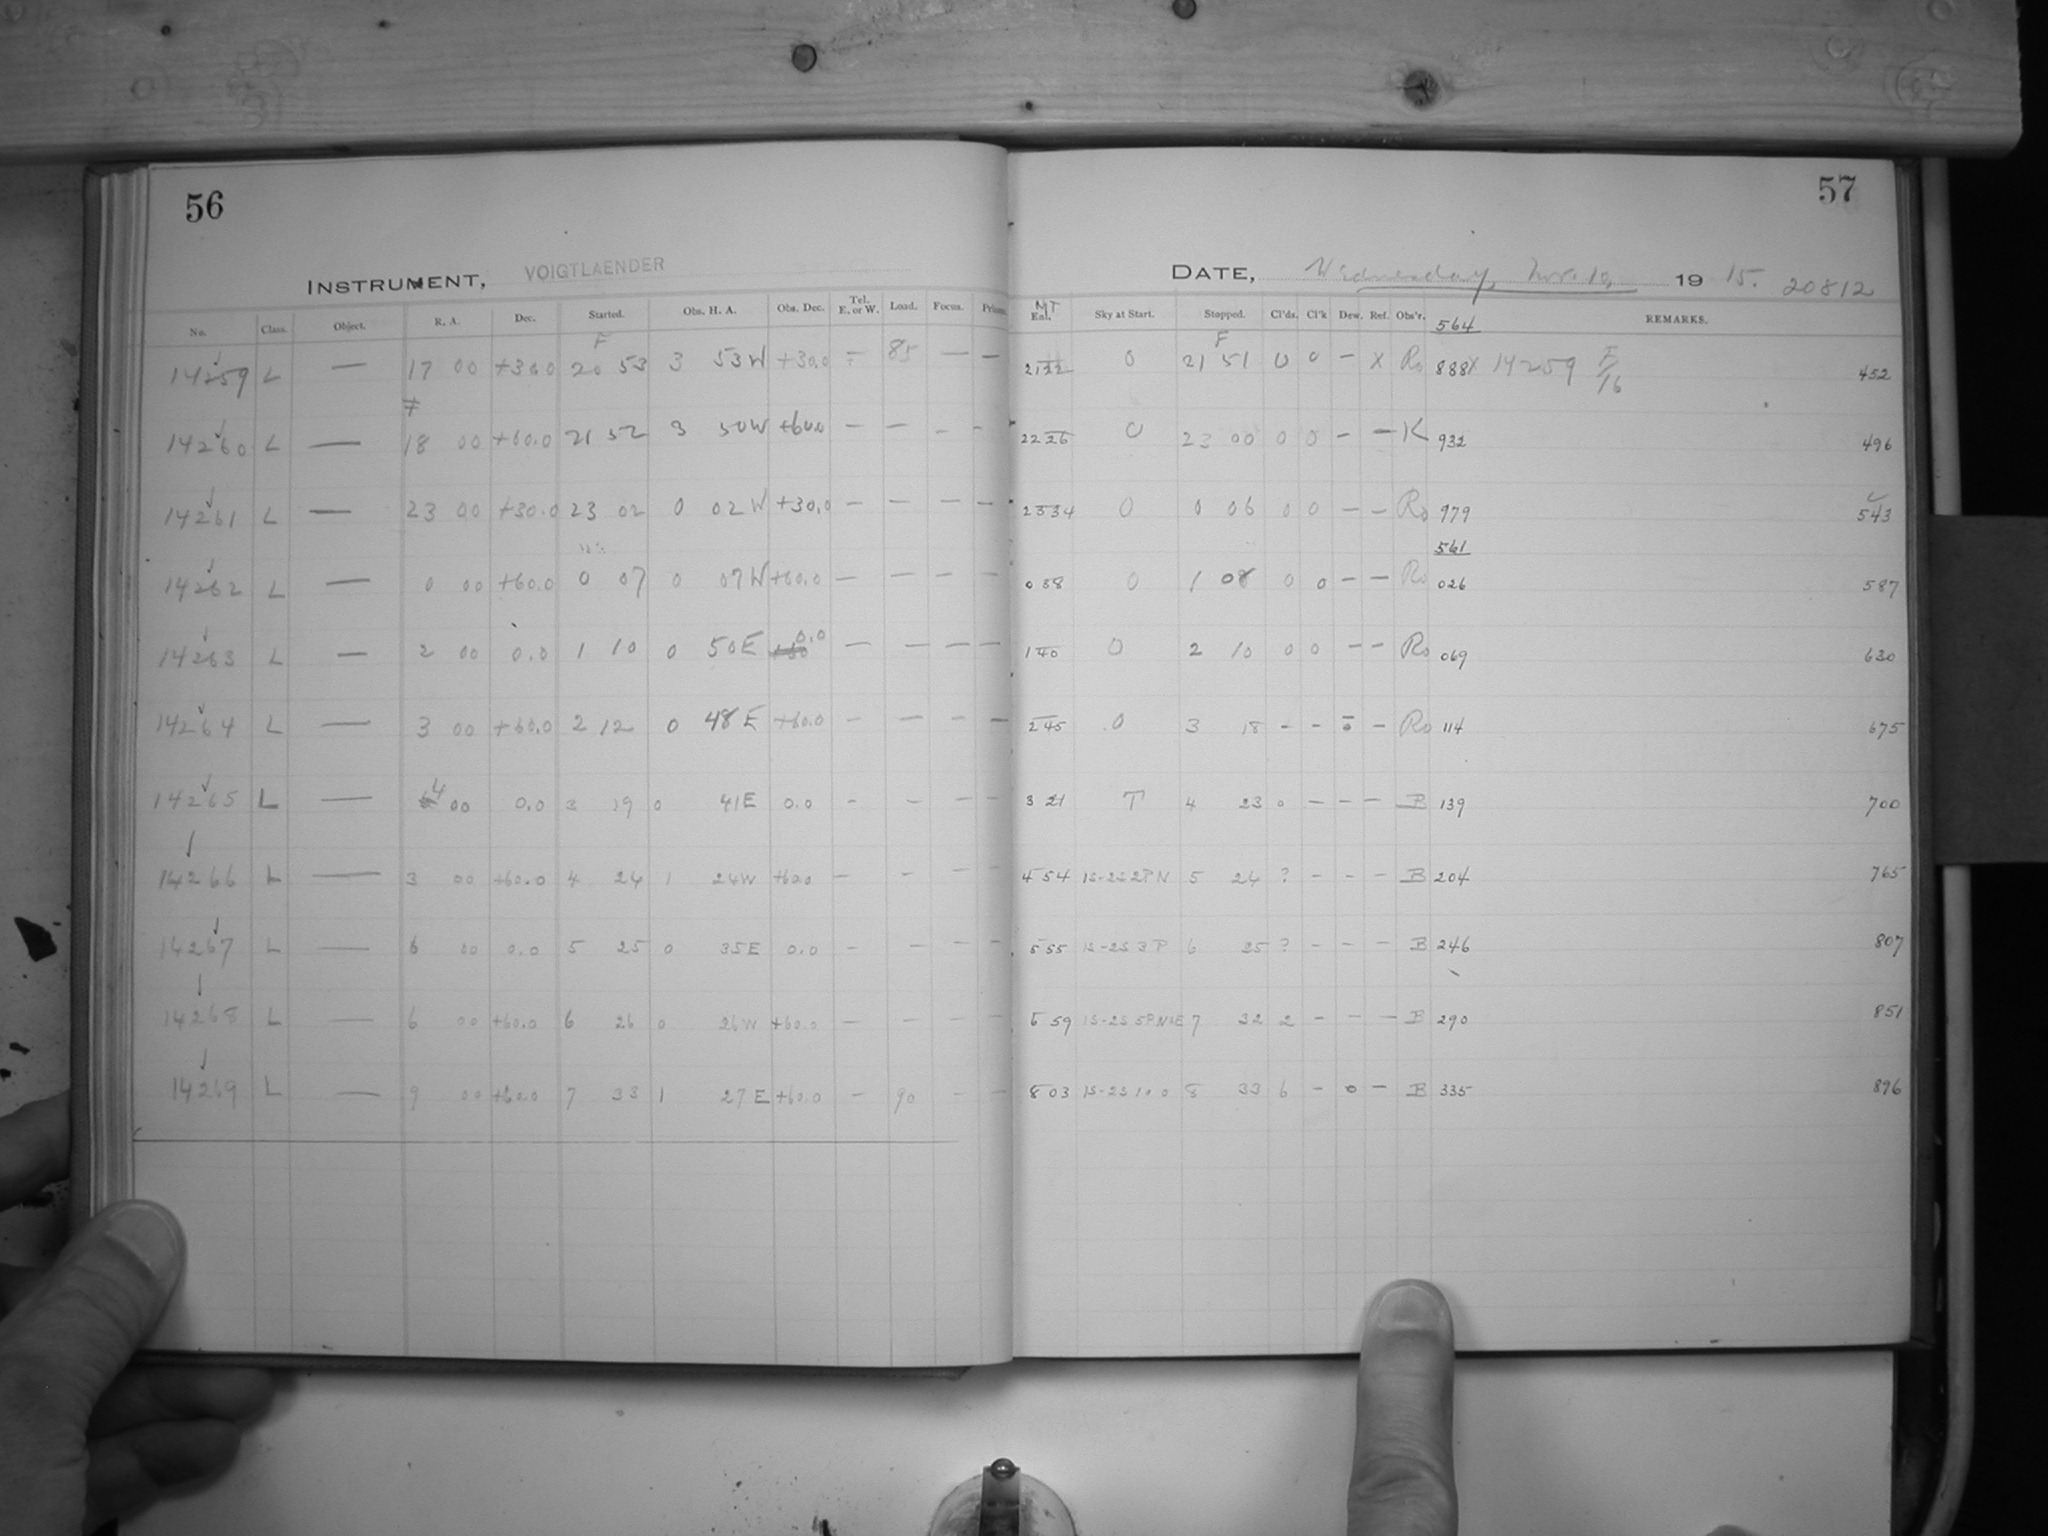 56
57
INSTRUMENT, VOIGTLAENDER
DATE, Wednesday, Nov. 10, 1915. 20812
No. Class. Object. R. A. Dec. Started. Obs. H. A. Obs. Dec. Tel. E. or W. Load. Focus. MT Sky at Start. Stopped. Cl'ds. Cl'k Dew. Ref. Obs'r. 564 REMARKS.
F F
14259 L — 17 00 +30.0 20 53 3 53W +30.0 - 85 — — 21 22 0 21 51 0 0 - X Ro 888X 14259 F/16 452
14260 L — 18 00 +60.0 21 52 3 50W +60.0 — — - - 22 26 0 23 00 0 0 - — K 932 496
14261 L — 23 00 +30.0 23 02 0 02W +30.0 — — — — 23 34 0 0 06 0 0 — — Ro 979 543
561
14262 L — 0 00 +60.0 0 07 0 07W +60.0 — — — — 0 38 0 1 08 0 0 — — Ro 026 587
14263 L — 2 00 0.0 1 10 0 50E 0.0 — — — — 1 40 0 2 10 0 0 — — Ro 069 630
14264 L — 3 00 +60.0 2 12 0 48E +60.0 — — — — 2 45 0 3 18 - - 0 - Ro 114 675
14265 L — 4 00 0.0 3 19 0 41E 0.0 - — — — 3 21 T 4 23 0 — — — B 139 700
14266 L — 3 00 +60.0 4 24 1 24W +60.0 — - — — 4 54 1S-2S 2P N 5 24 ? - - - B 204 765
14267 L — 6 00 0.0 5 25 0 35E 0.0 - — — — 5 55 1S-2S 3P 6 25 ? - - - B 246 807
14268 L — 6 00 +60.0 6 26 0 26W +60.0 — — — — 6 59 1S-2S 5P N+E 7 32 2 - - - B 290 851
14269 L — 9 00 +60.0 7 33 1 27E +60.0 — 90 - — 8 03 1S-2S 10 0 8 33 6 - 0 - B 335 896